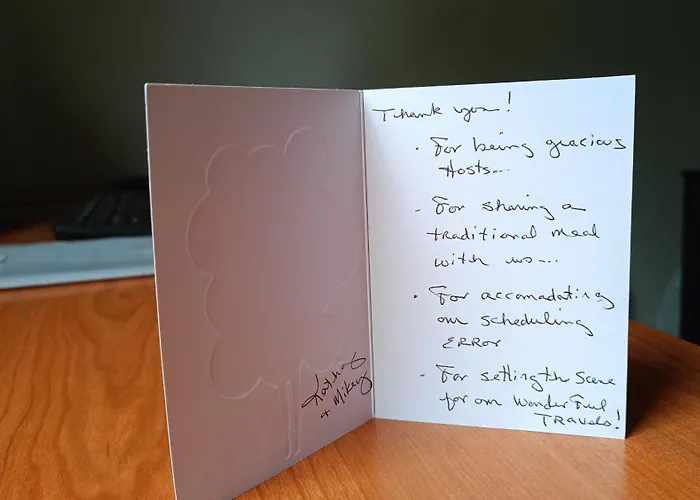 Thank you!
- For being gracious
Hosts...
- For sharing a
traditional meal
with us...
- For accomadating
our scheduling
ERROR
- For setting the scene
for our wonderful
TRAVELS!
Kathy
+ Mikey